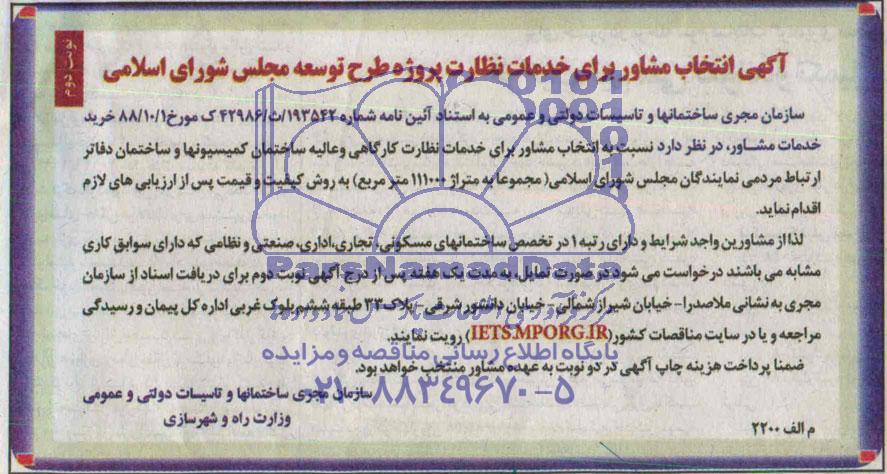 نوبت دوم
آگهی انتخاب مشاور برای خدمات نظارت پروژه طرح توسعه مجلس شورای اسلامی
سازمان مجری ساختمانها و تاسیسات دولتی و عمومی به استناد آئین نامه شماره ۱۹۳۵۴۲/ت/۴۲۹۸۶ ک مورخ ۸۸/۱۰/۱ خرید
خدمات مشاور، در نظر دارد نسبت به انتخاب مشاور برای خدمات نظارت کارگاهی وعالیه ساختمان کمیسیونها و ساختمان دفاتر
ارتباط مردمی نمایندگان مجلس شورای اسلامی( مجموعا به متراژ ۱۱۱۰۰۰ متر مربع) به روش کیفیت و قیمت پس از ارزیابی های لازم
اقدام نماید.
لذا از مشاورین واجد شرایط و دارای رتبه ۱ در تخصص ساختمانهای مسکونی، تجاری،اداری، صنعتی و نظامی که دارای سوابق کاری
مشابه می باشند درخواست می شود در صورت تمایل، به مدت یک هفته پس از درج آگهی نوبت دوم برای دریافت اسناد از سازمان
مجری به نشانی ملاصدرا- خیابان شیراز شمالی - خیابان دانشور شرقی - پلاک ۳۳ طبقه ششم بلوک غربی اداره کل پیمان و رسیدگی
مراجعه و یا در سایت مناقصات کشور (IETS.MPORG.IR) رویت نمایند.
ضمنا پرداخت هزینه چاپ آگهی در دو نوبت به عهده مشاور منتخب خواهد بود.
سازمان مجری ساختمانها و تاسیسات دولتی و عمومی
وزارت راه و شهرسازی
م الف ۲۲۰۰
ParsNamadData
پایگاه اطلاع رسانی مناقصه و مزایده
۰۲۱-۸۸۳۴۹۶۷۰-۵